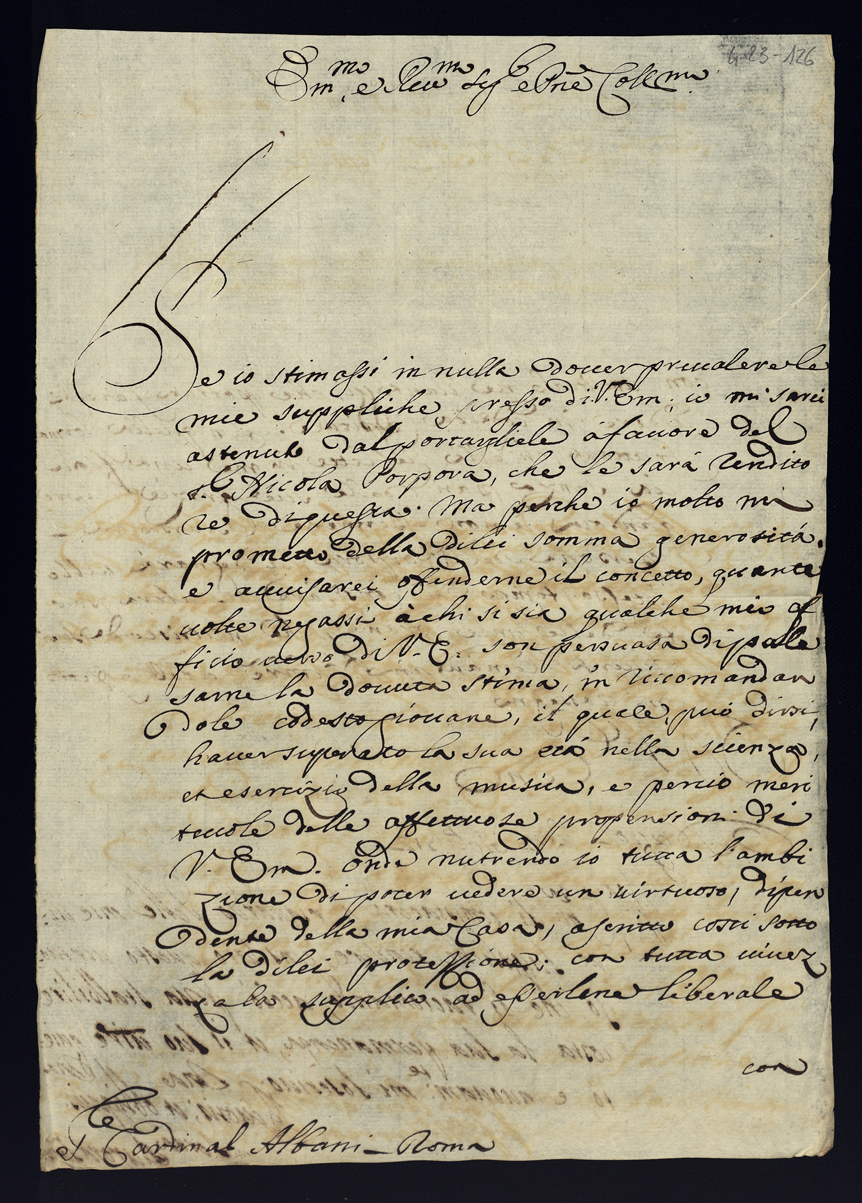 6-23-126
Em.mo e Reu.mo Sig.r e Prne Coll.mo
Se io stimassi in nulla douer preualere le
mie suppliche presso di V. Em; io mi sarei
astenuto dal portagliele à fauore del
s.r Nicola Porpora, che le sarà rendito
re di questa. Ma perche io molto mi
prometto della di lei somma generosità.
e auuisarei offenderne il concetto, quante
uolte negassi à chi si sia qualche mio of
ficio uerso di V. E: son persuasa di pale
sarne la douuta stima, in riccomandan
dole codesto giouane, il quale, può dirsi,
hauer superato la sua età nella scienza,
et esercizio della musica, e perciò meri
teuole delle affettuose propensioni di
V. Em. Onde nutrendo io tutta l'ambi
zione di poter uedere un uirtuoso, dipen
dente della mia Casa, ascritto costi sotto
la di lei protessione; con tutta uiuez
za la supplico ad esserlene liberale
con
Cardinal Albani - Roma